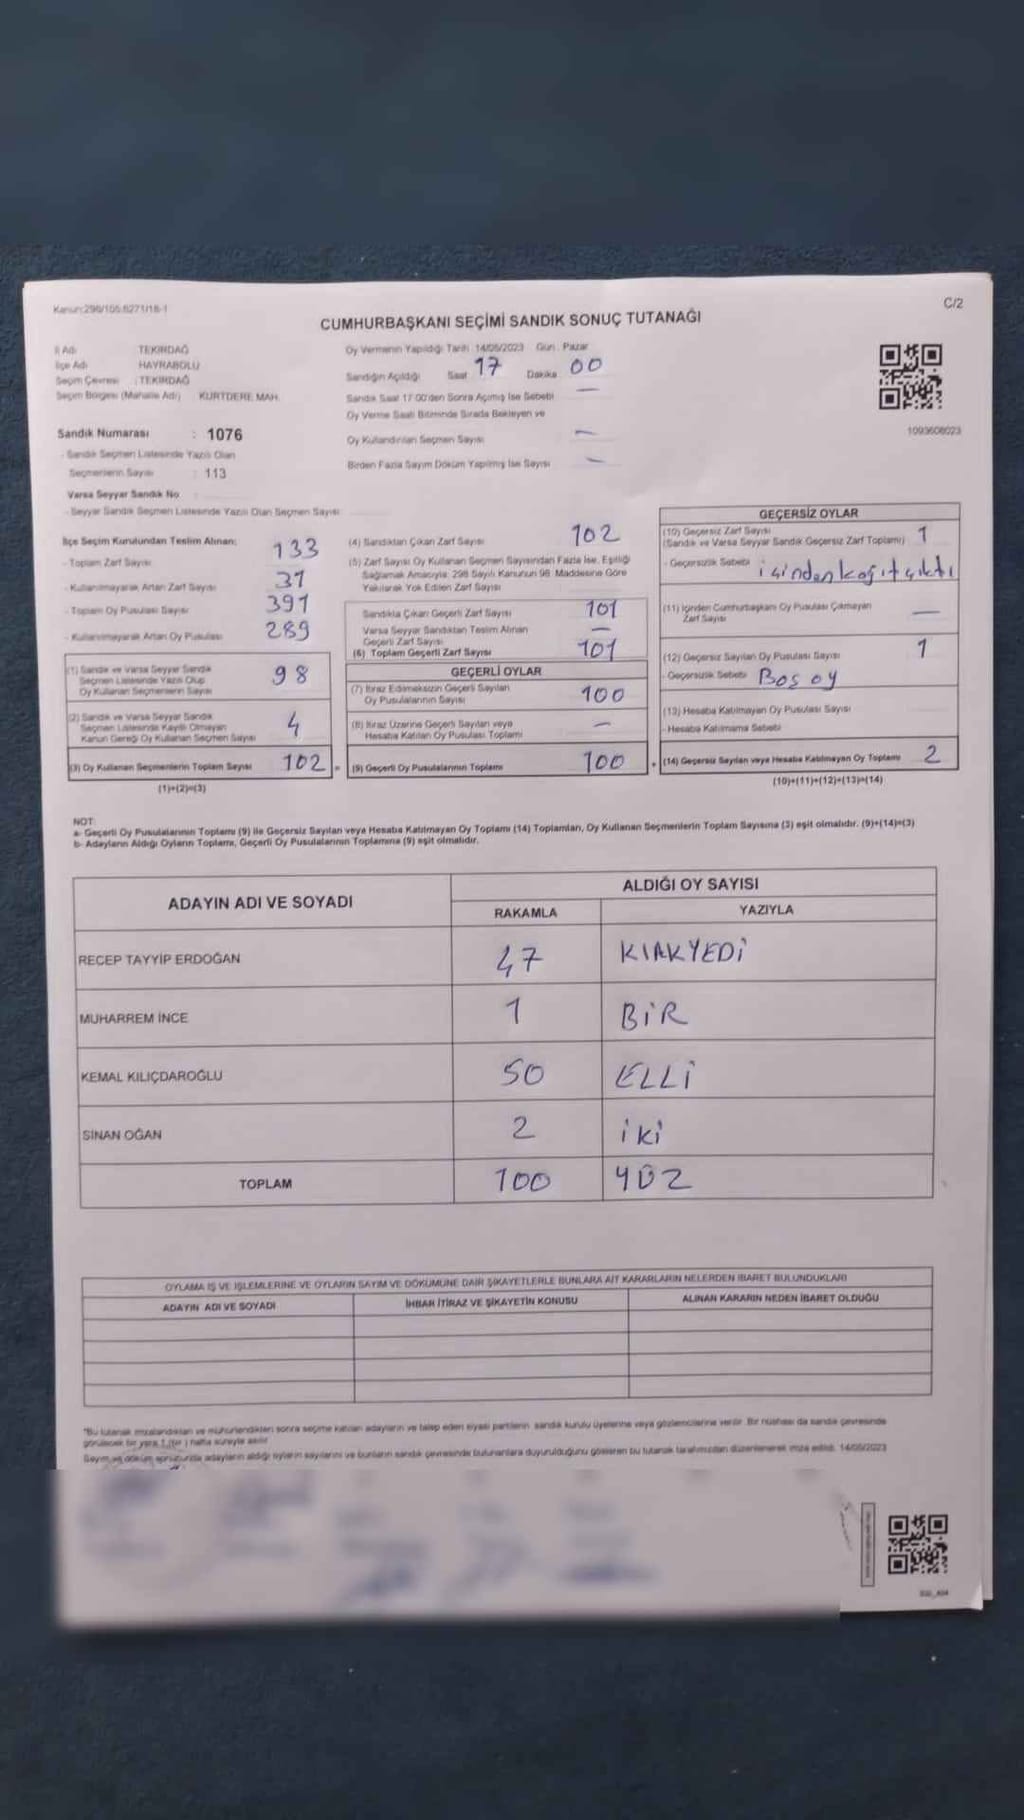 Kanun:298/105.6271/18-1
C/2
CUMHURBAŞKANI SEÇİMİ SANDIK SONUÇ TUTANAĞI
İl Adı TEKİRDAĞ
İlçe Adı HAYRABOLU
Seçim Çevresi : TEKİRDAĞ
Seçim Bölgesi (Mahalle Adı) KURTDERE MAH.
Sandık Numarası : 1076
- Sandık Seçmen Listesinde Yazılı Olan
Seçmenlerin Sayısı : 113
Varsa Seyyar Sandık No :
- Seyyar Sandık Seçmen Listesinde Yazılı Olan Seçmen Sayısı
Oy Vermenin Yapıldığı Tarih 14/05/2023 Gün : Pazar
Sandığın Açıldığı Saat 17 Dakika 00
Sandık Saat 17:00'den Sonra Açılmış İse Sebebi —
Oy Verme Saati Bitiminde Sırada Bekleyen ve
Oy Kullandırılan Seçmen Sayısı —
Birden Fazla Sayım Döküm Yapılmış İse Sayısı —
1093608023
İlçe Seçim Kurulundan Teslim Alınan:
- Toplam Zarf Sayısı 133
- Kullanılmayarak Artan Zarf Sayısı 31
- Toplam Oy Pusulası Sayısı 391
- Kullanılmayarak Artan Oy Pusulası 289
(1) Sandık ve Varsa Seyyar Sandık
Seçmen Listesinde Yazılı Olup
Oy Kullanan Seçmenlerin Sayısı 98
(2) Sandık ve Varsa Seyyar Sandık
Seçmen Listesinde Kayıtlı Olmayan
Kanun Gereği Oy Kullanan Seçmen Sayısı 4
(3) Oy Kullanan Seçmenlerin Toplam Sayısı 102 =
(1)+(2)=(3)
(4) Sandıktan Çıkan Zarf Sayısı 102
(5) Zarf Sayısı Oy Kullanan Seçmen Sayısından Fazla İse, Eşitliği
Sağlamak Amacıyla, 298 Sayılı Kanunun 98. Maddesine Göre
Yakılarak Yok Edilen Zarf Sayısı
Sandıkta Çıkan Geçerli Zarf Sayısı 101
Varsa Seyyar Sandıktan Teslim Alınan
Geçerli Zarf Sayısı —
(6) Toplam Geçerli Zarf Sayısı 101
GEÇERLİ OYLAR
(7) İtiraz Edilmeksizin Geçerli Sayılan
Oy Pusulalarının Sayısı 100
(8) İtiraz Üzerine Geçerli Sayılan veya
Hesaba Katılan Oy Pusulası Toplamı —
(9) Geçerli Oy Pusulalarının Toplamı 100 +
GEÇERSİZ OYLAR
(10) Geçersiz Zarf Sayısı
(Sandık ve Varsa Seyyar Sandık Geçersiz Zarf Toplamı) 1
- Geçersizlik Sebebi içinden kağıt çıktı
(11) İçinden Cumhurbaşkanı Oy Pusulası Çıkmayan
Zarf Sayısı —
(12) Geçersiz Sayılan Oy Pusulası Sayısı 1
- Geçersizlik Sebebi Boş oy
(13) Hesaba Katılmayan Oy Pusulası Sayısı
- Hesaba Katılmama Sebebi
(14) Geçersiz Sayılan veya Hesaba Katılmayan Oy Toplamı 2
(10)+(11)+(12)+(13)=(14)
NOT:
a- Geçerli Oy Pusulalarının Toplamı (9) ile Geçersiz Sayılan veya Hesaba Katılmayan Oy Toplamı (14) Toplamları, Oy Kullanan Seçmenlerin Toplam Sayısına (3) eşit olmalıdır. (9)+(14)=(3)
b- Adayların Aldığı Oyların Toplamı, Geçerli Oy Pusulalarının Toplamına (9) eşit olmalıdır.
ADAYIN ADI VE SOYADI
ALDIĞI OY SAYISI
RAKAMLA YAZIYLA
RECEP TAYYİP ERDOĞAN 47 KIRKYEDİ
MUHARREM İNCE 1 BİR
KEMAL KILIÇDAROĞLU 50 ELLİ
SİNAN OĞAN 2 iki
TOPLAM 100 YÜZ
OYLAMA İŞ VE İŞLEMLERİNE VE OYLARIN SAYIM VE DÖKÜMÜNE DAİR ŞİKAYETLERLE BUNLARA AİT KARARLARIN NELERDEN İBARET BULUNDUKLARI
ADAYIN ADI VE SOYADI İHBAR İTİRAZ VE ŞİKAYETİN KONUSU ALINAN KARARIN NEDEN İBARET OLDUĞU
"Bu tutanak imzalandıktan ve mühürlendikten sonra seçime katılan adayların ve talep eden siyasi partilerin sandık kurulu üyelerine veya gözlemcilerine verilir. Bir nüshası da sandık çevresinde
görülecek bir yere 1 (bir) hafta süreyle asılır.
Sayım ve döküm sonucunda adayların aldığı oyların sayılarını ve bunların sandık çevresinde bulunanlara duyurulduğunu gösteren bu tutanak tarafımızdan düzenlenerek imza edildi. 14/05/2023